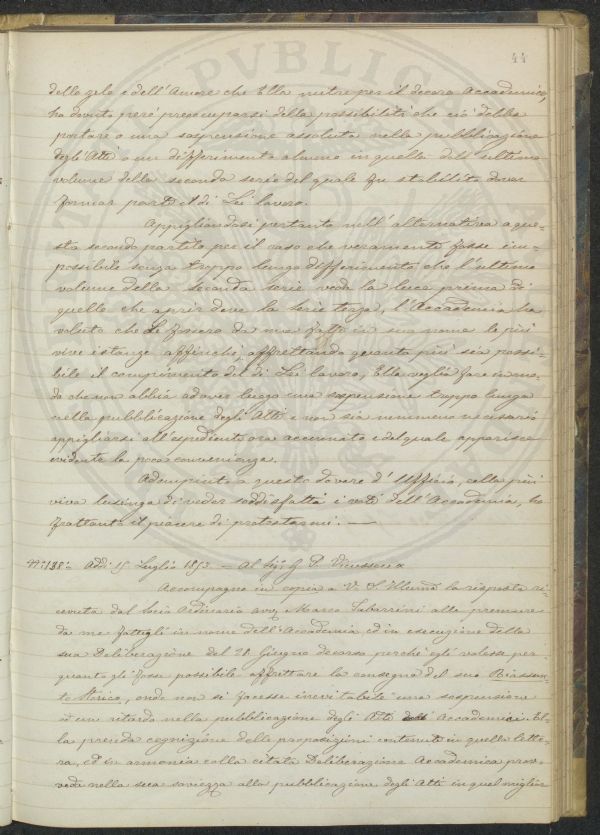 44
dello zelo e dell'Amore che Ella nutre per il decoro Accademico,
ha dovuto però preoccuparsi della possibilità che ciò debba
portare o una sospensione assoluta nella pubblicazione
degli Atti o un differimento almeno in quella dell'ultimo
volume della seconda serie del quale fu stabilito dover
formar parte il di Lei lavoro.
Appigliandosi pertanto nell'alternativa a que=
sto secondo partito per il caso che veramente fosse im=
possibile senza troppo lungo differimento che l'ultimo
volume della seconda serie veda la luce prima di
quello che aprir deve la serie terza, l'Accademia ha
voluto che Le fossero da me fatte in suo nome le più
vive istanze affinchè, affrettando quanto più sia possi=
bile il compimento del di Lei lavoro, Ella voglia fare in mo=
do che non abbia ad aver luogo una sospensione troppo lunga
nella pubblicazione degli Atti e non sia nemmeno necessario
appigliarsi all'espediente ora accennato e del quale apparisce
evidente la poca convenienza.
Adempiuto a questo dovere d'Uffizio, colla più
viva lusinga di veder soddisfatti i voti dell'Accademia, ho
frattanto il piacere di protestarmi. —
N.° 138 = Addì 15 Luglio 1853. — Al Sig. G. P. Vieusseux
Accompagno in copia a V. S. Illma la risposta ri=
cevuta dal Socio Ordinario avv. Marco Tabarrini alle premure
da me fattegli in nome dell'Accademia, ed in esecuzione della
sua Deliberazione del Giugno decorso perchè egli volesse per
quanto gli fosse possibile affrettare la consegna del suo Riassun=
to Storico, onde non si facesse inevitabile una sospensione
o un ritardo nella pubblicazione degli Atti Accademici. El=
la prenda cognizione delle proposizioni contenute in quella lette=
ra, ed in armonia colla citata Deliberazione Accademica prov=
veda nella sua saviezza alla pubblicazione degli Atti in quel miglior